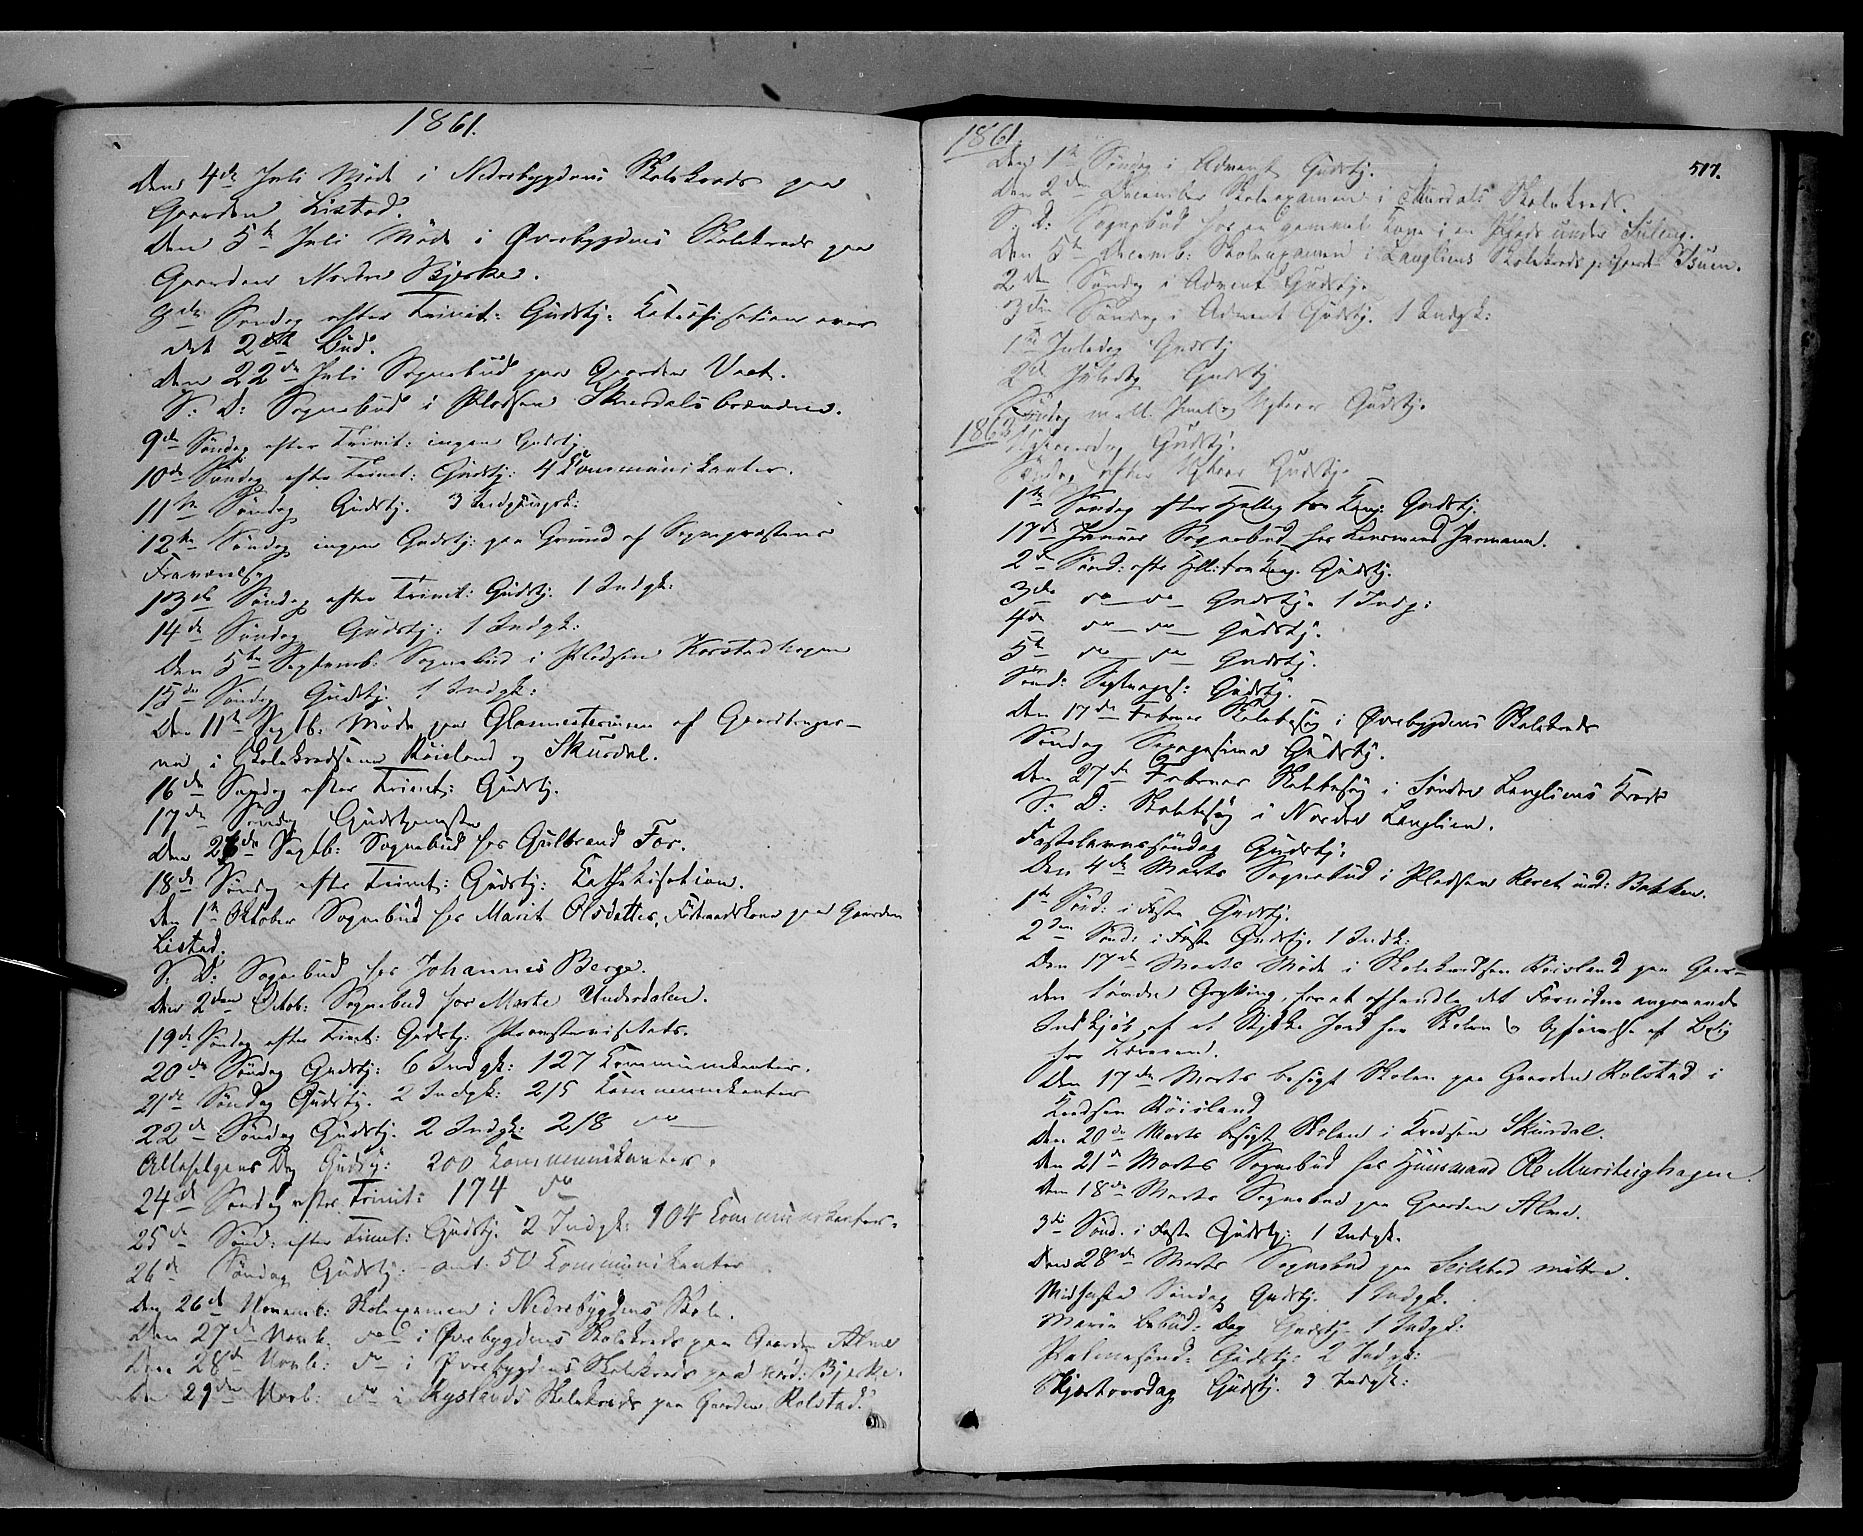 1861.
Den 4de Juli Møde i Nedrebygdens Skolekreds paa
Gaarden Listad.
Den 5te Juli Møde i Øvrebygdens Skolekreds paa
Gaarden Nordre Bjerke.
8de Søndag efter Trinit: Gudstj: Katechisation over
det 2det Bud.
Den 22de Juli Sognebud paa Gaarden
S: D: Sognebud i Pladsen
9de Søndag efter Trinit: ingen Gudstj.
10de Søndag efter Trinit: Gudstj: 4 Kommunikanter.
11te Søndag Gudstj. 3 Indgangsk:
12te Søndag ingen Gudstj: paa Grund af Sognepræstens
Fraværelse
13de Søndag efter Trinit: Gudstj. 1 Indgk:
14de Søndag Gudstj: 1 Indgk:
Den 5te Septemb: Sognebud i Pladsen
15de Søndag Gudstj. 1 Indgk:
Den 11te Septb: Møde paa af Gaardbruger-
ne i Skolekredsene Röisland og Skurdal.
16de Søndag efter Trinit: Gudstj.
17de Søndag Gudstjeneste
Den Septb: Sognebud hos Gulbrand For.
18de Søndag efter Trinit: Gudstj: Kathekisation.
Den 1te Oktober Sognebud hos Marit Olsdatter, Föderaadskone paa Gaarden
Listad.
S: D: Sognebud hos Johannes Berge.
Den 2den Octob: Sognebud hos Marte Underdalen.
19de Søndag efter Trinit: Gudstj: Provstevisitats.
20de Søndag Gudstj: 6 Indgk: 127 Kommunikanter.
21de Søndag Gudstj. 2 Indgk: 215 Kommunikanter
22de Søndag Gudstj. 2 Indgk: 218 do
Allehelgens Dag Gudstj: 200 Kommunikanter.
24de Søndag efter Trinit: 174 do
25de Sønd: efter Trinit: Gudstj. 2 Indgk: 104 Kommunikanter.
26de Søndag Gudstj: 50 Kommunikanter
Den 26de Novemb: Skoleexamen i Nedrebygdens Skole.
Den 27de Novb. do i Øvrebygdens Skolekreds paa Gaarden Alme
Den 28de Novb: do i Øvrebygdens Skolekreds paa nord: Bjerke.
Den 29de Novb: do i Röislands Skolekreds paa Gaarden Rolstad.
517.
1861.
Den 1te Søndag i Advent Gudstj.
Den 2den December Skoleexamen i Skurdals Skolekreds.
S: D: Sognebud hos en gammel Kone i en Plads under
Den 5te Decemb: Skoleexamen i Langliens Skolekreds paa Gaarden Buen.
2den Søndag i Advent Gudstj.
3die Søndag i Advent Gudstj. 1 Indgk:
1ste Juledag Gudstj
2den Juledag Gudstj
Søndag mell. Juul og Nytaar Gudstj.
1862
Nytaarsdag Gudstj.
Søndag efter Nytaar Gudstj.
1te Søndag efter Hellig tre Kong: Gudstj.
17de Januar Sognebud hos Lensmand Jermann.
2den Sønd: efter Hell: tre Kong. Gudstj.
3die do — do — Gudstj. 1 Indg:
4de do — do — Gudstj.
5te do — do — Gudstj.
Sønd: Septuages: Gudstj.
Den 17de Februar Skolebesög i Øvrebygdens Skolekreds
Søndag Sexagesima Gudstj.
Den 27de Februar Skolebesög i Søndre Langliens Kreds
S: D: Skolebesög i Nordre Langlien.
Fastelavnssöndag Gudstj:
Den 4de Marts Sognebud i Pladsen und: Bakken.
1te Sønd: i Faste Gudstj.
2den Sønd: i Faste Gudstj. 1 Indk:
Den 17de Marts Møde i Skolekredsen Röisland paa Gaar-
den Søndre Grytting, for at afhandle det Fornødne angaaende
Indkjöb af et Stykke Jord for Skolen & Opførelse af Bolig
for Læreren.
Den 17de Marts besögt Skolen paa Gaarden Rolstad i
Kredsen Röisland
Den 20de Marts besögt Skolen i Kredsen Skurdal.
Den 21de Marts Sognebud hos Huusmand Ole Muristighagen.
Den 18de Marts Sognebud paa Gaarden Alme.
3die Sønd. i Faste Gudstj: 1 Indgk.
Den 28de Marts Sognebud paa Seilstad
Midfaste Søndag Gudstj. 1 Indgk.
Maria Bebud: Dag Gudstj. 1 Indgk:
Palmesønd: Gudstj: 2 Indgk:
Skjærtorsdag Gudstj. 3 Indgk: